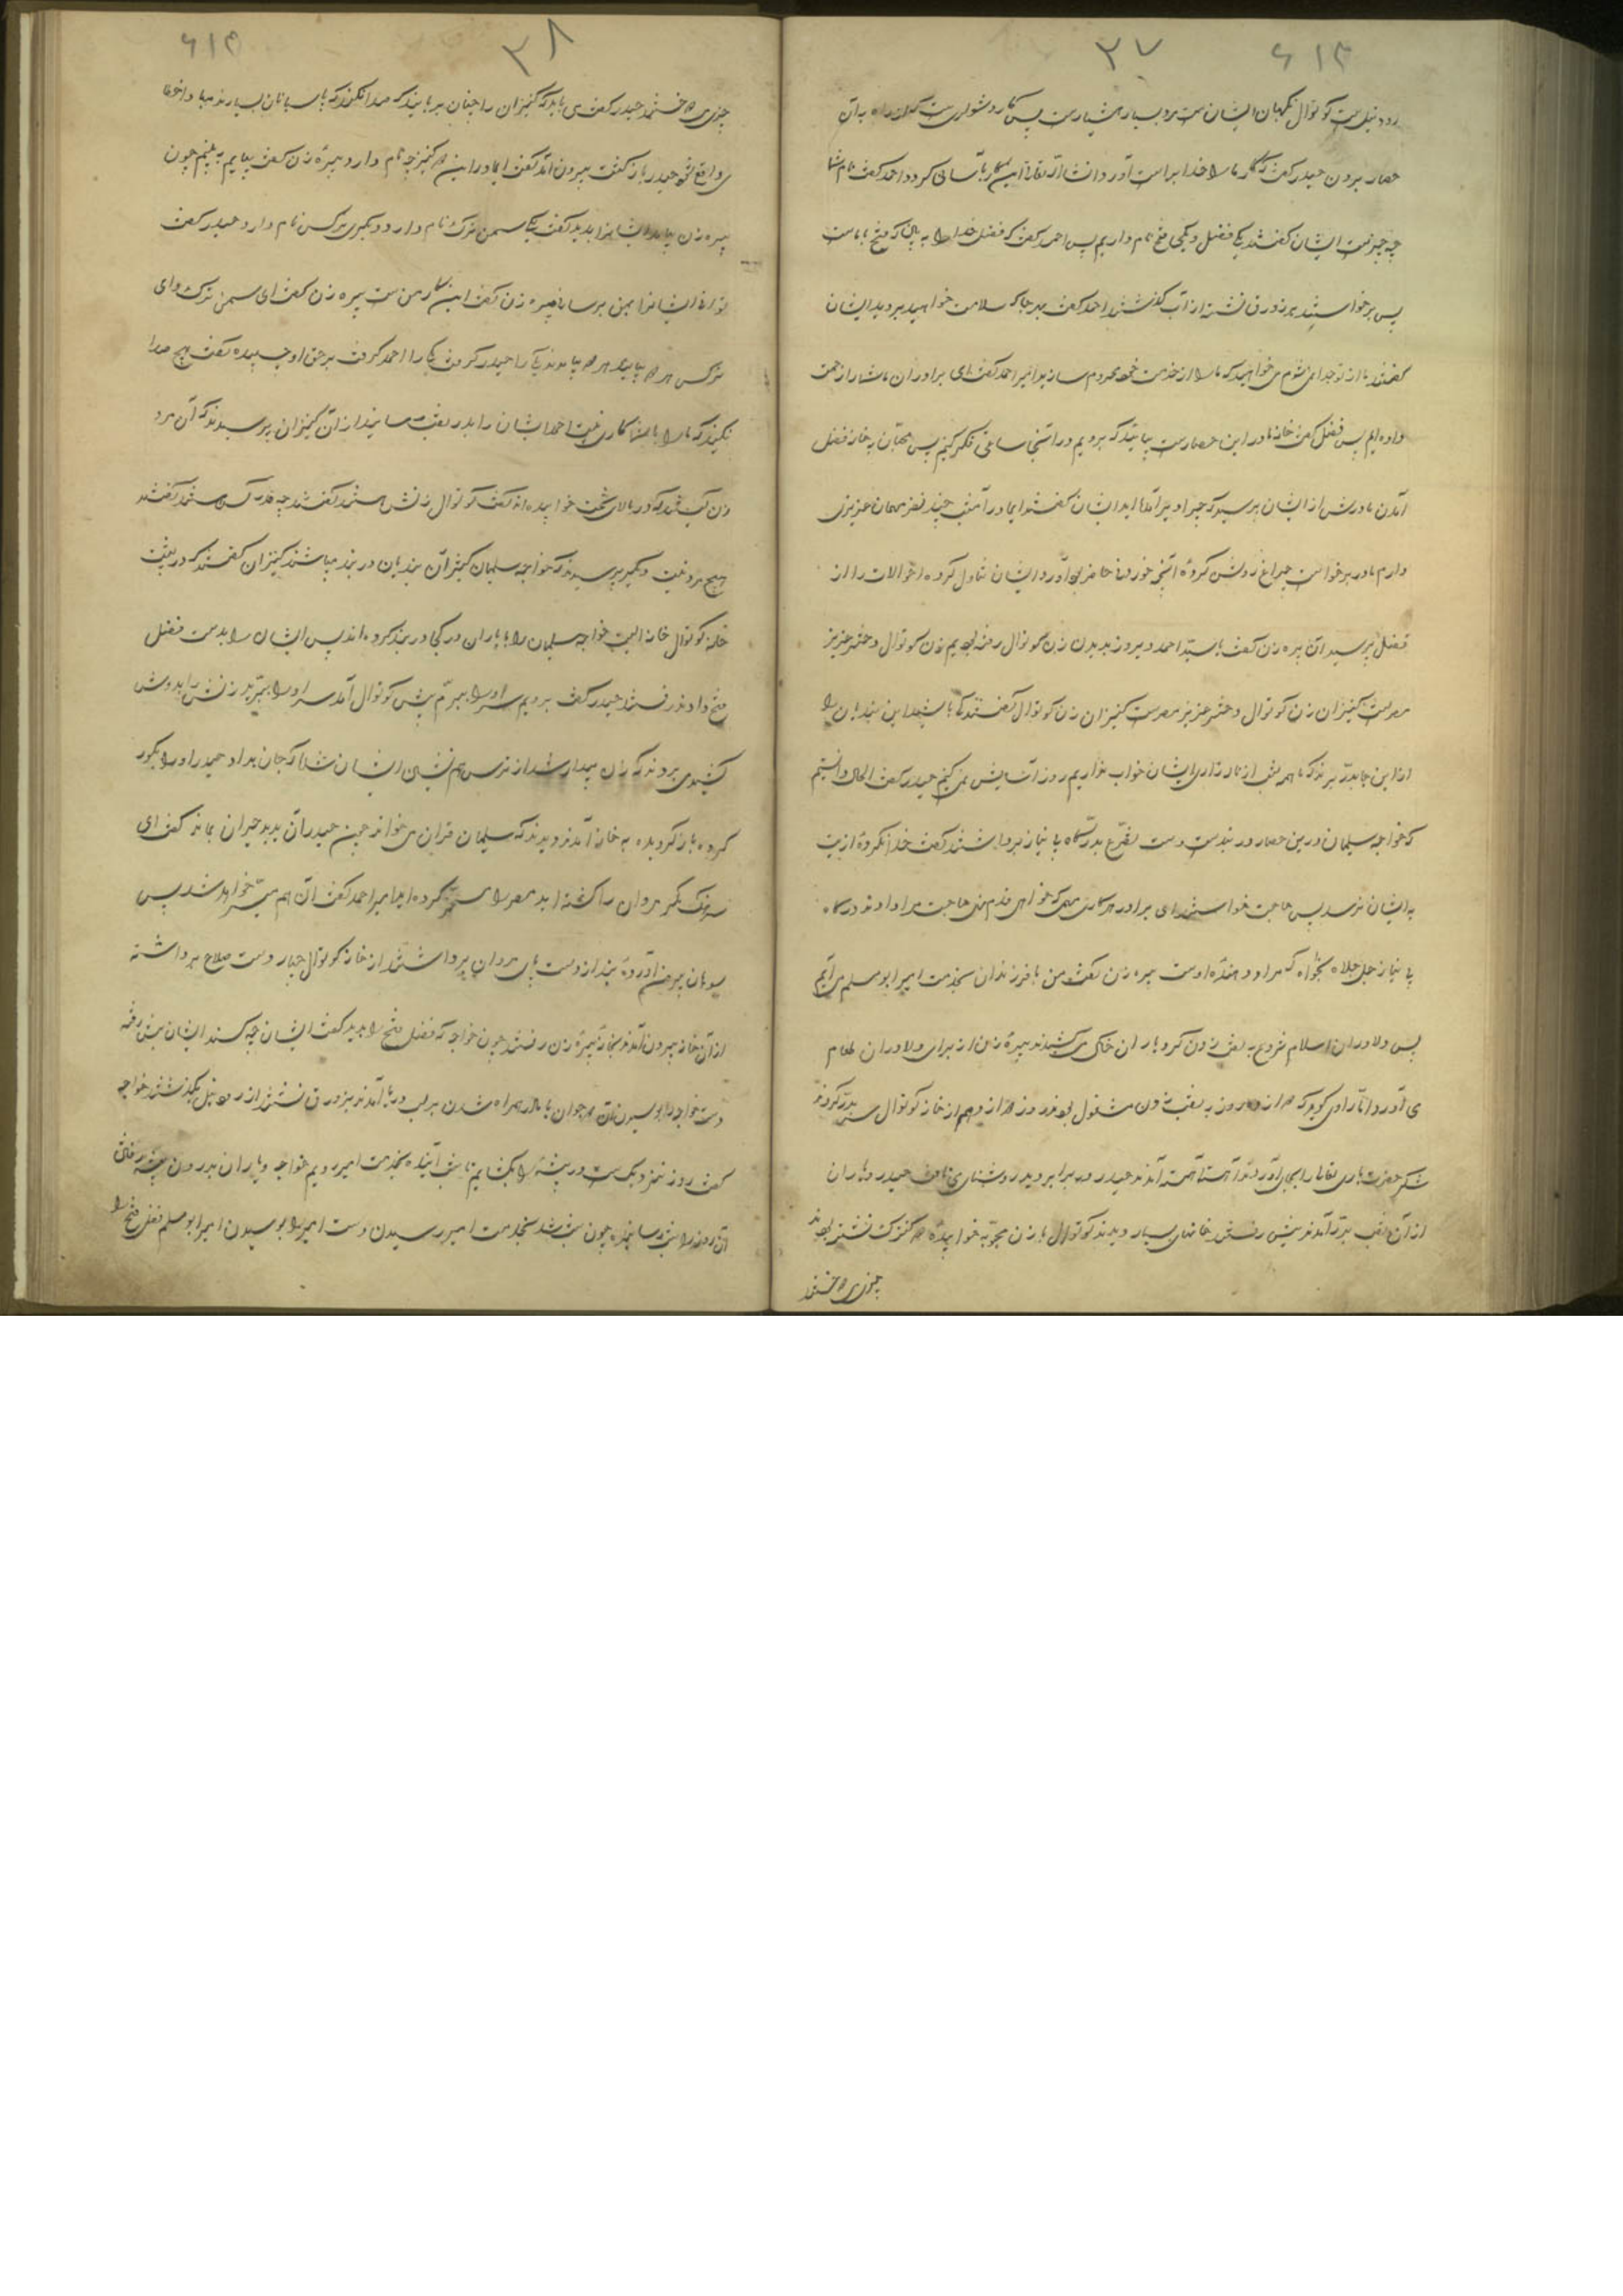 ۳۷ ۶۱۳
رود نیل ست کوتوال نگهبان ایشان ست مرد بسیار هشیار ست پس کار دشوار ست راه به آن
حصار بردن حیدر کفت که کار ما را خدا براست آورد انشا الله تعالی این کار بآسانی کردد احمد کفت نام شما
چه چیز ست ایشان کفتند یکی فضل و یکی فتح نام داریم پس احمد کفت که فضل خدا فتح با ماست
پس برخواستند بر زورق نشسته از آب کذشتند احمد کفت بهر جا که سلامت خواهید بروید ایشان
کفتند ما از تو جدا نمی شوم می خواهید که ما را از خدمت خود محروم سازید امیر احمد کفت ای برادران ما شما را زحمت
داده ایم پس فضل کفت خانه ما در این حصار ست بیائید که برویم در آنجا ساعتی فکر کنیم پس محبان به خانه فضل
آمدن مادرش از ایشان پرسید که چرا دیر آمده اید ایشان کفتند ای مادر امشب چند نفر مهمان عزیزی
دارم مادر برخواست چراغ روشن کرده آنچه خوردنی حاضر بود آورد ایشان تناول کرده احوالات را از
فضل پرسید آن پیره زن کفت یا سید احمد دیروز بدیدن زن کوتوال رفته بودیم زن کوتوال دختر عزیز
مصر ست کنیزان زن کوتوال و دختر عزیز مصر ست کنیزان زن کوتوال کفتند که باشد این بندیان را
از این جا بدر برند که ما همه شب از ناله و زاری ایشان خواب نداریم روز آسایش نمی کنیم حیدر کفت الحال دانستیم
که خواجه سلیمان درین حصار در بند ست دست تضرع بدرگاه بی نیاز برداشتند کفت خدا نکرده اذیت
به ایشان نرسد پس حاجت خواستند ای برادر هر کاری مهمی که خواهی قدم نهی حاجت مراد او دهد درگاه
بی نیاز جل جلاله بخواه که مراد دهنده اوست پیره زن کفت من با فرزندان بخدمت امیر ابو مسلم می آیم
پس دلاوران اسلام شروع به نقب زدن کرد یاران خاک می کشیدند پیره زن از برای دلاوران طعام
می آورد اما راوی کوید که روز به نقب زدن مشغول بودند روز از خانه کوتوال سر بدر کردند
شکر حضرت باری تعالی را بجای آوردند آهسته آهسته آمدند حیدر در برابر دید روشنای یافت حیدر و یاران
از آن نقب بدر آمدند پیش رفتند خانهای بسیار دیدند کوتوال با زن محبوبه خوابیده دو کنیزک نشسته بودند
چیزی می خستند
۳۸ ۶۱۴
چیزی می خستند حیدر کفت می باید که کنیزان را چنان بربایند که صدا نکنند که پاسبانان بسیارند مبادا خطا
واقع شود حیدر باز کشت بیرون آمد کفت ای مادر این دو کنیز چه نام دارد پیره زن کفت بیایم به بینم چون
پیره زن بیامد ایشانرا بدید کفت یکی سمن ترک نام دارد و دیکری نرکس نام دارد حیدر کفت
توانی ایشانرا بمن برسانی پیره زن کفت این کار من ست پیره زن کفت ای سمن ترک و ای
نرکس هر دو بیائید هر دو بیامدند یکی را حیدر کرفت یکی را احمد کرفت بر حلق او چسپیده کفت هیچ صدا
نکنید که ما را با شما کاری نیست احمد ایشان را بدر نقب رسانیدند از آن کنیزان پرسیدند که آن مرد
و زن کیستند که در بالای تخت خوابیده اند کفت کوتوال زنش هستند کفتند چه قدر کس هستند کفتند
هیچ مرد نیست دیکر پرسیدند که خواجه سلیمان کجا آن بندیان در بند میباشند کنیزان کفتند که در پشت
خانه کوتوال خانه ایست خواجه سلیمان را با یاران در آنجا در بند کرده اند پس ایشان را بدست فضل
فتح دادند رفتند حیدر کفت برویم سر او را ببریم پیش کوتوال آمد سر او را ببرید زنش را بدوش
کشیده می بردند که زن بیدار شد از ترس هم نشینی ایشان شد که جان بداد حیدر او را بکور
کرده باز کردیده به خانه آمدند دیدند که سلیمان قران می خواند چون حیدر آن بدید حیران بماند کفت ای
سرهنک مکر مروان را کشته اید مصر را مسخر کرده اید امیر احمد کفت آن هم میسر خواهد شد پس
سوهان بیرون آورده بند از دست پای مردان برداشتند از خانه کوتوال جبار دست سلاح برداشته
از آن خانه بیرون آمدند بخانه پیره زن رفتند چون خواجه که فضل فتح را بدید کفت ایشان چه کسند ایشان پیش رفته
دست خواجه را بوسیدن آن دو جوان با مادر همراه شدن بر لب دریا آمدند بزورق نشستند از رود نیل بکذشتند خواجه
کفت روز نزدیک ست در بیشه را بکشایم تا شب آینده بخدمت امیر رویم خواجه و یاران بدرون بیشه رفتند
آن روز را شب رسانیدند چون شب شد بخدمت امیر رسیدن دست امیر را بوسیدن امیر ابو مسلم فضل فتح را